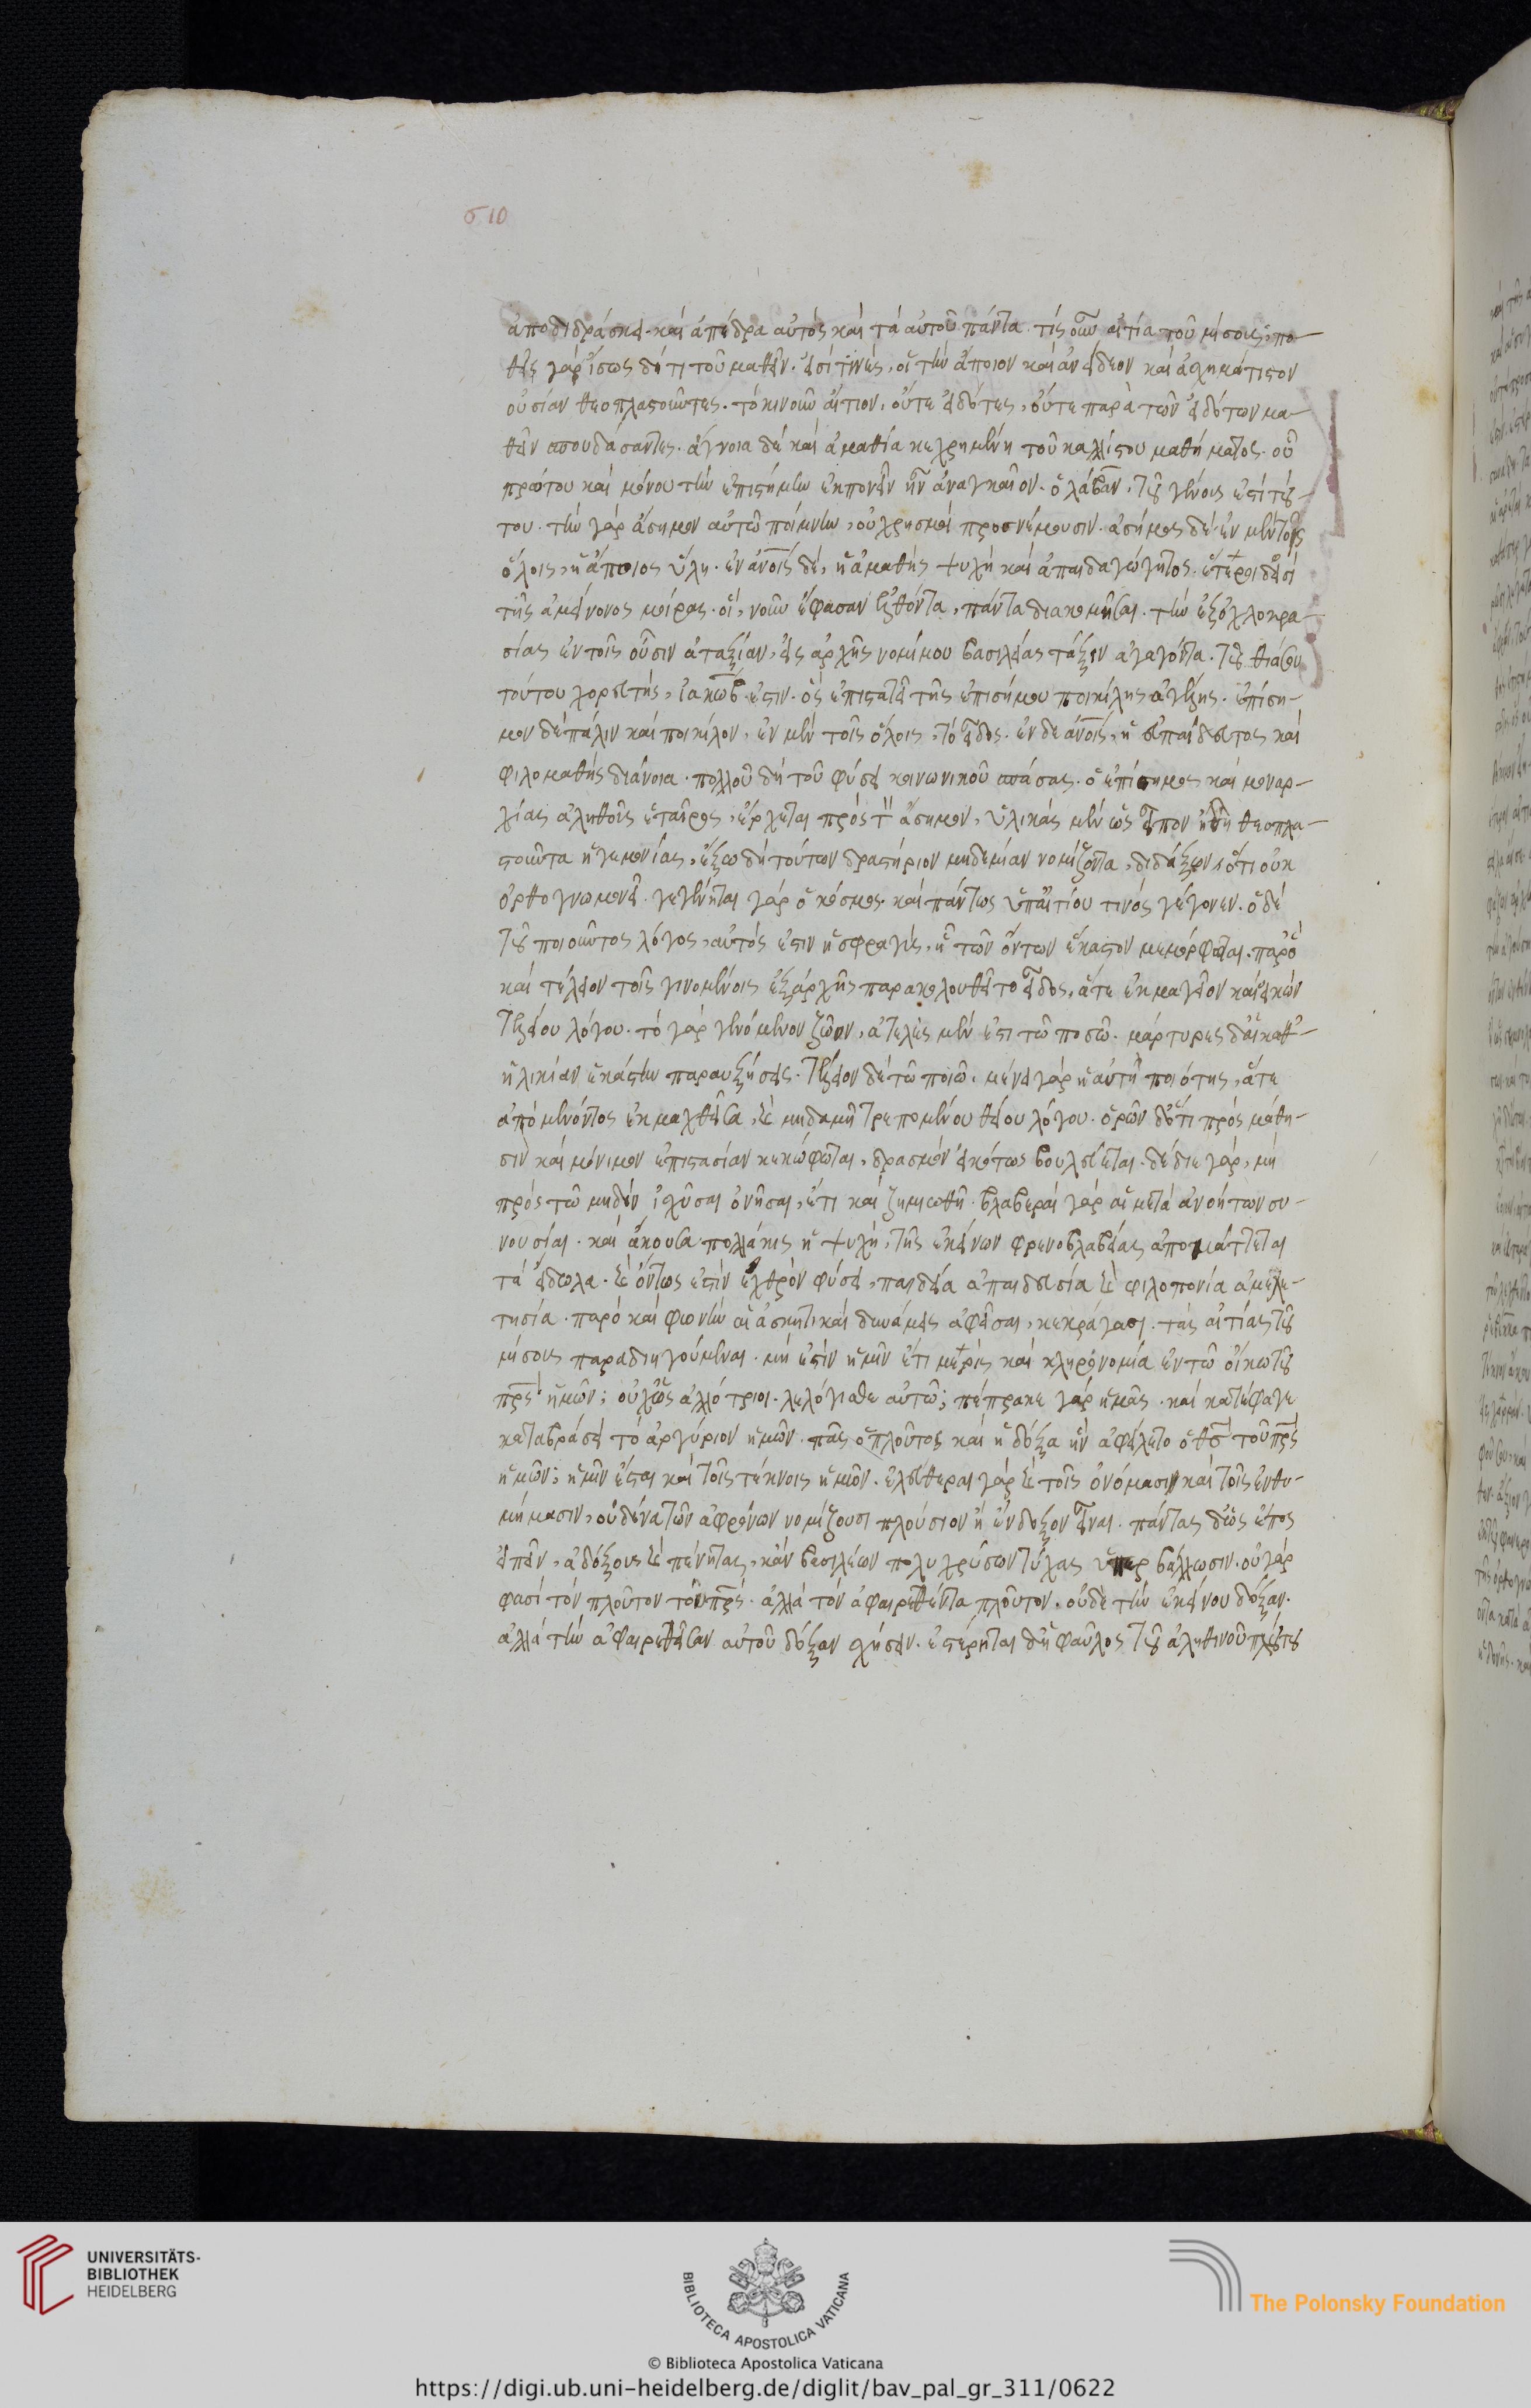 σ 10
ἀποδιδράσκει· καὶ ἀπέδρα αὐτὸς καὶ τὰ αὐτοῦ πάντα. τίς οὖν αἰτία τοῦ μίσους; πο-
θεῖς γὰρ ἴσως δέ τι τοῦ μαθεῖν. εἰσί τινες, οἳ τὴν ἄποιον καὶ ἀνείδεον καὶ ἀσχημάτιστον
οὐσίαν θεοπλαστοῦντες. τὸ κινοῦν αἴτιον, οὔτε εἰδότες, οὔτε παρὰ τῶν εἰδότων μα-
θεῖν σπουδάσαντες. ἀγνοία δὲ καὶ ἀμαθία κεχρημένη τοῦ καλλίστου μαθήματος. οὗ
πρώτου καὶ μόνου τὴν ἐπιστήμην ἐκπονεῖν ἦν ἀναγκαῖον. ὁ λάβαν, τοῦ γένους ἐστὶ τού-
του. τὴν γὰρ ἄσημον αὐτῷ ποίμνην, οἱ χρησμοὶ προσνέμουσιν. ἄσημος δὲ ἐν μὲν τοῖς
ὅλοις, ἡ ἄποιος ὕλη. ἐν ἀνοῖς δὲ, ἡ ἀμαθὴς ψυχὴ καὶ ἀπαιδαγώγητος. ἕτεροι δ' εἰσὶ
τῆς ἀμείνονος μοίρας. οἳ, νοῦν ἔφασαν ἐλθόντα, πάντα διακοσμῆσαι. τὴν ἐξ ὀχλοκρα-
σίας ἐν τοῖς οὖσιν ἀταξίαν, εἰς ἀρχῆς νομίμου βασιλείας τάξιν ἀγαγόντα. τοῦ θιάσου
τούτου χορευτὴς, ἰακὼβ ἐστιν. ὃς ἐπιστατεῖ τῆς ἐπισήμου ποικίλης ἀγέλης. ἐπίση-
μον δὲ πάλιν καὶ ποικίλον, ἐν μὲν τοῖς ὅλοις, τὸ εἶδος. ἐν δε ἀνοῖς, ἡ εὐπαίδευτος καὶ
φιλομαθὴς διάνοια. πολλοῦ δὴ τοῦ φύσει κοινωνικοῦ σπάσας. ὁ ἐπίσημος καὶ μοναρ-
χίας ἀληθοῦς ἑταῖρος, ἔρχεται πρὸς τὸν ἄσημον, ὑλικὰς μὲν ὡς εἶπον ἤδη θεοπλα-
στοῦντα ἡγεμονίας, ἔξω δὴ τούτων δραστήριον μηδεμίαν νομίζοντα, διδάξων ὅτι οὐκ
ὀρθογνωμονεῖ. γεγένηται γὰρ ὁ κόσμος καὶ πάντως ὑπ' αἰτίου τινὸς γέγονεν. ὁ δὲ
τοῦ ποιοῦντος λόγος, αὐτός ἐστιν ἡ σφραγὶς, ᾗ τῶν ὄντων ἕκαστον μεμόρφωται. παρὸ
καὶ τέλειον τοῖς γινομένοις ἐξ ἀρχῆς παρακολουθεῖ το εἶδος, ἅτε ἐκμαγεῖον καὶ εἰκὼν
τελείου λόγου. τὸ γὰρ γενόμενον ζῶον, ἀτελὲς μέν ἐστι τῷ ποσῷ. μάρτυρες δ' αἱ καθ'
ἡλικίαν ἑκάστην παραυξήσεις. τέλειον δὲ τῷ ποιῷ. μένει γὰρ ἡ αὐτὴ ποιότης, ἅτε
ἀπὸ μένοντος ἐκμαχθεῖσα, καὶ μηδαμῆ τρεπομένου θείου λόγου. ὁρῶν δ' ὅτι πρὸς μάθη-
σιν καὶ μόνιμον ἐπιστασίαν κεκώφωται, δρασμὸν εἰκότως βουλεύεται. δέδιε γὰρ, μὴ
πρὸς τῷ μηδὲν ἰσχῦσαι ὀνῆσαι, ἔτι καὶ ζημιωθῇ. βλαβεραὶ γὰρ αἱ μετὰ ἀνοήτων συ-
νουσίαι. καὶ ἄκουσα πολλάκις ἡ ψυχὴ, τῆς ἐκείνων φρενοβλαβείας ἀπομάττεται
τὰ εἴδωλα. καὶ ὄντως ἐστὶν ἐχθρὸν φύσει, παιδεία ἀπαιδευσία καὶ φιλοπονία ἀμελε-
τησία. παρὸ καὶ φωνὴν αἱ ἀσκητικαὶ δυνάμεις ἀφεῖσαι, κεκράγασι. τὰς αἰτίας τοῦ
μίσους παραδιηγούμεναι. μή ἐστὶν ἡμῖν ἔτι μερὶς καὶ κληρονομία ἐν τῷ οἴκω τοῦ
πρς ἡμῶν; οὐχ ὡς ἀλλότριοι λελόγισθε αὐτῷ; πέπρακε γὰρ ἡμᾶς. καὶ κατέφαγε
καταβρώσει τὸ ἀργύριον ἡμῶν. πᾶς ὁ πλοῦτος καὶ ἡ δόξα ἣν ἀφείλετο ὁ θσ τοῦ πρς
ἡμῶν; ἡμῖν ἔσται καὶ τοῖς τέκνοις ἡμῶν. ἐλεύθεραι γὰρ καὶ τοῖς ὀνόμασιν καὶ τοῖς ἐνθυ-
μήμασιν, οὐδένα τῶν ἀφρόνων νομίζουσι πλούσιον ἢ ἔνδοξον εἶναι. πάντας δ' ὡς ἔπος
εἰπεῖν, ἀδόξους καὶ πένητας, κἂν βασιλέων πολυχρύσων τύχας ὑπερβάλλωσιν. οὐ γάρ
φασὶ τὸν πλοῦτον τοῦ πρς. ἀλλὰ τὸν ἀφαιρεθέντα πλοῦτον. οὐδὲ τὴν ἐκείνου δόξαν.
ἀλλὰ τὴν ἀφαιρεθεῖσαν αὐτοῦ δόξαν σχήσειν. ἐστέρηται δ' ὁ φαῦλος τοῦ ἀληθινοῦ πλούτου
UNIVERSITÄTS-
BIBLIOTHEK
HEIDELBERG
BIBLIOTECA APOSTOLICA VATICANA
The Polonsky Foundation
© Biblioteca Apostolica Vaticana
https://digi.ub.uni-heidelberg.de/diglit/bav_pal_gr_311/0622